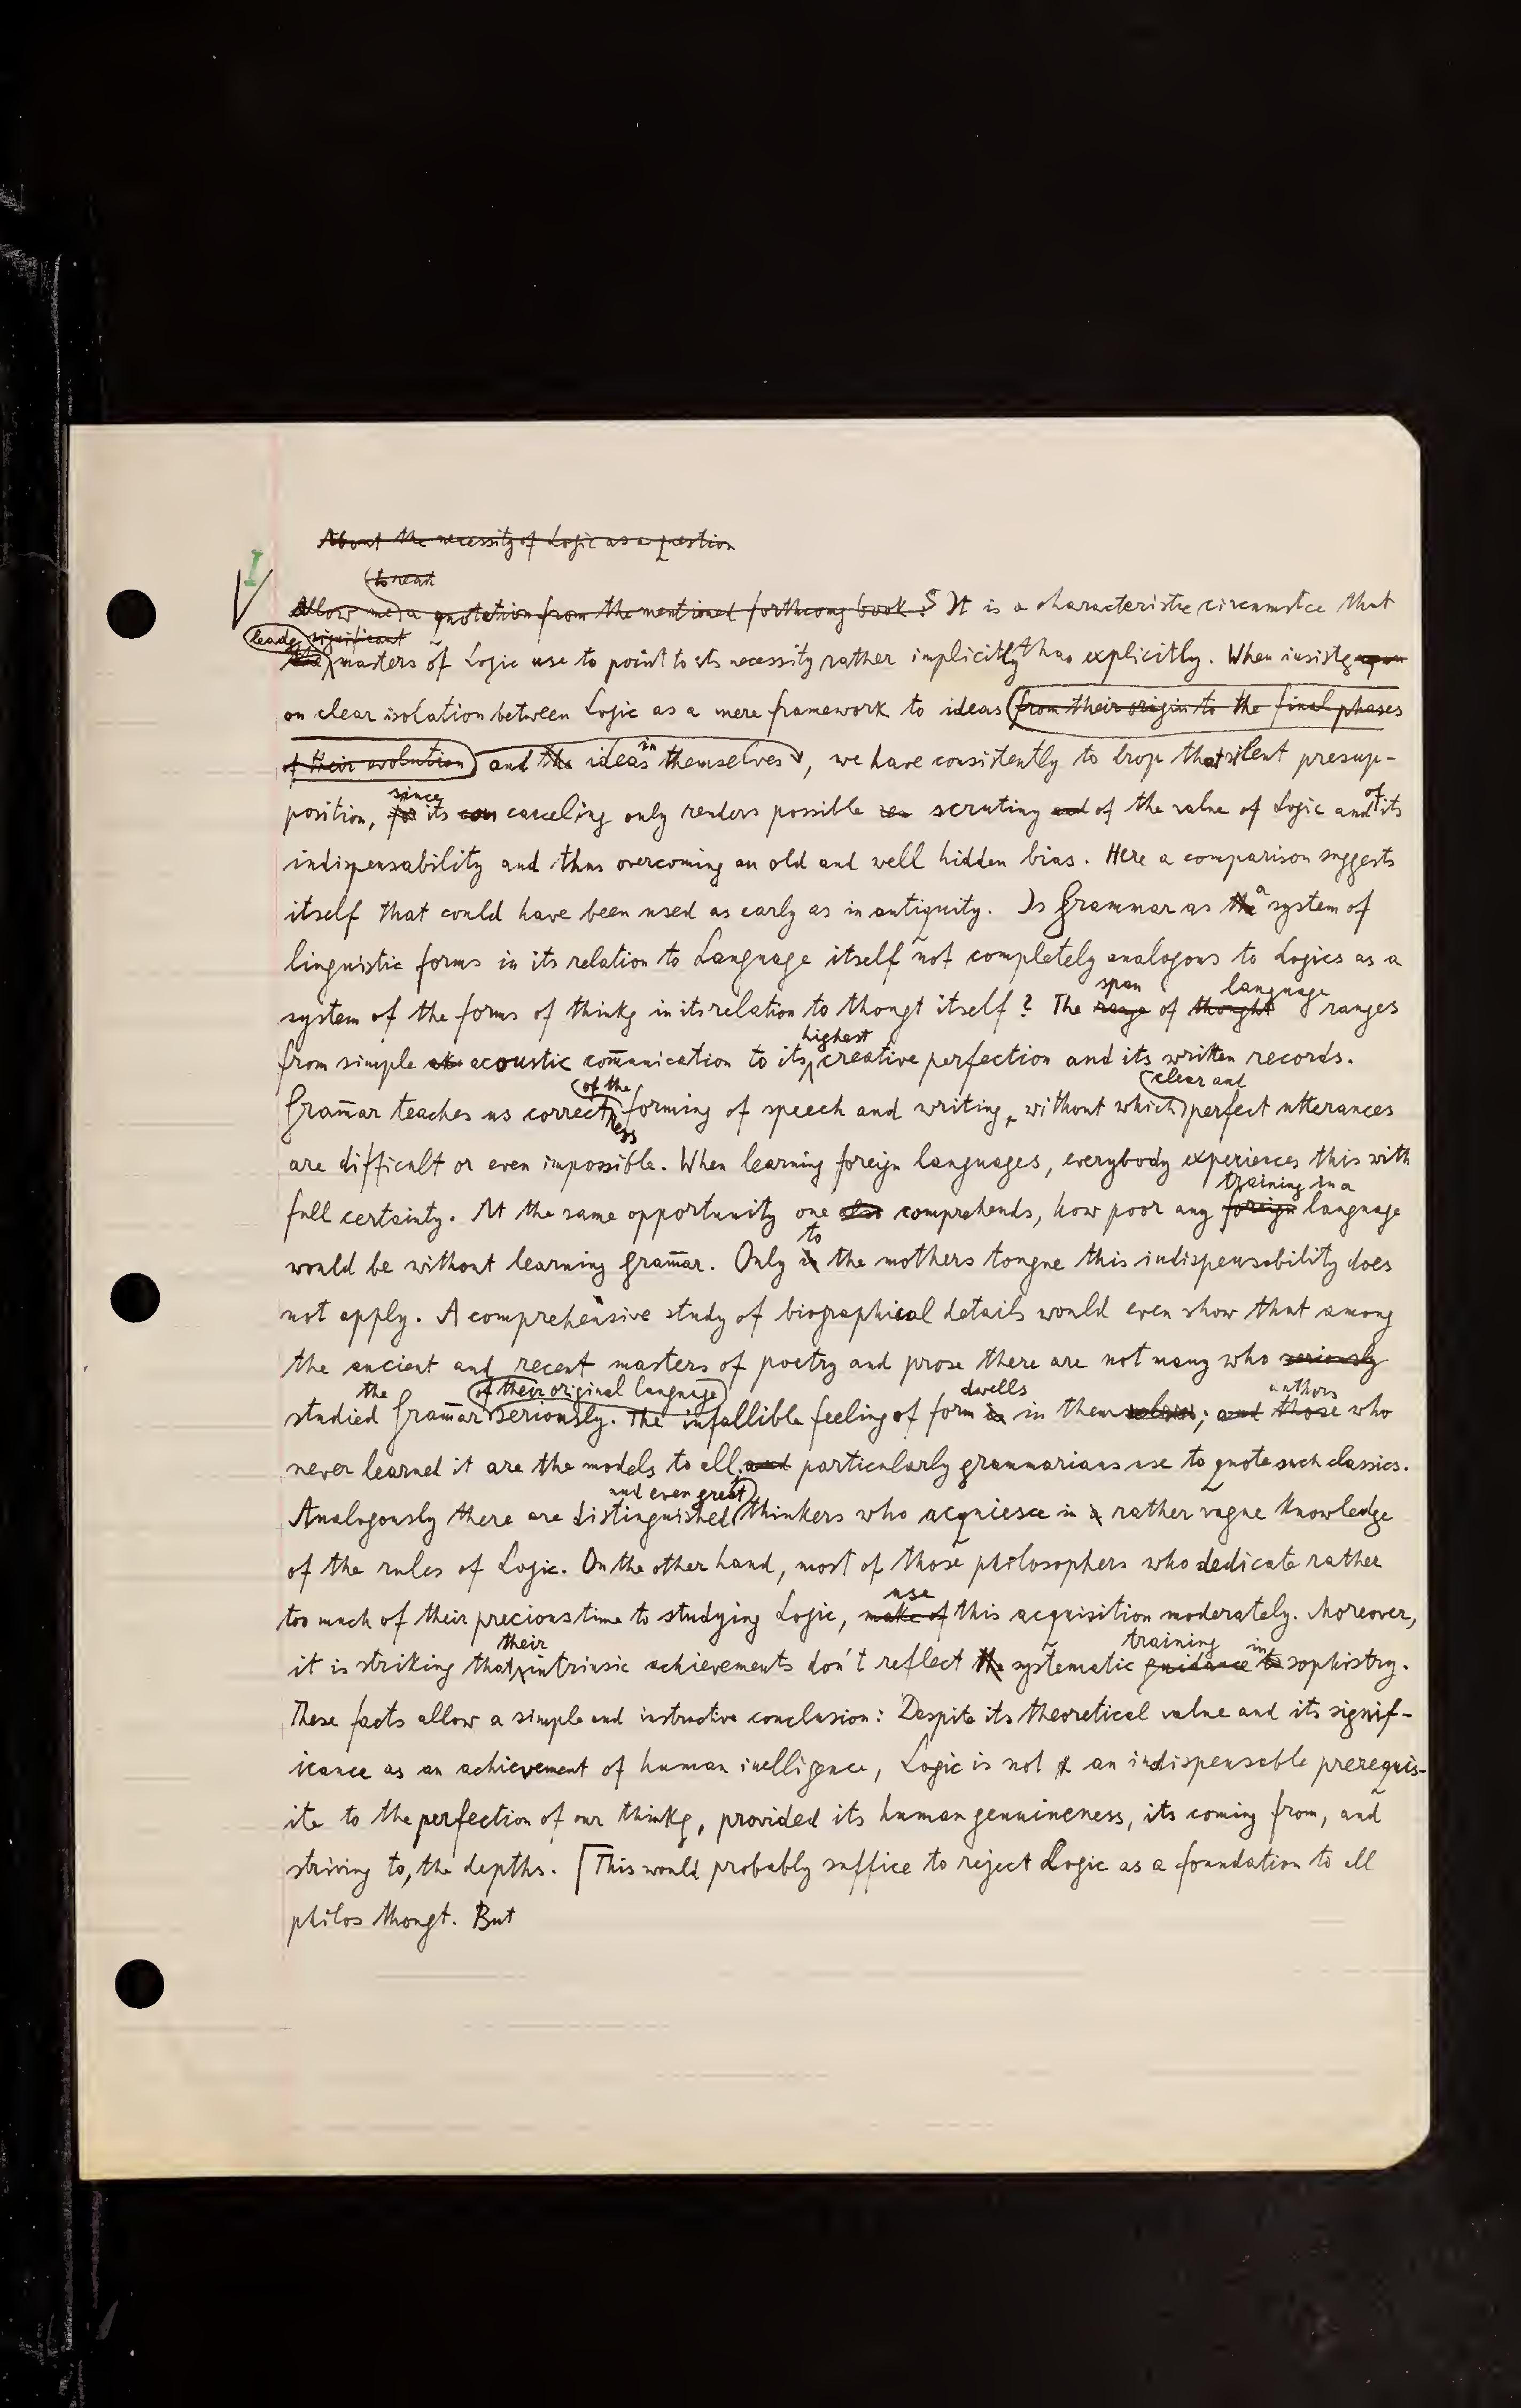 About the necessity of Logic as a question
I
(to read
Allow me) a quotation from the mentioned forthcomg book: It is a characteristic circumstce that
leadg significant
the masters of Logic use to point to its necessity rather implicitly than explicitly. When insistg upon
on clear isolation between Logic as a mere framework to ideas (from their origin to the final phases
of their evolution) and the ideas in themselves, we have consistently to drop that silent presup-
since of
position, for its con canceling only renders possible scrutiny and of the value of Logic and its
indispensability and thus overcoming an old and well hidden bias. Here a comparison suggests
itself that could have been used as early as in antiquity. Is Grammar as the a system of
linguistic forms in its relation to Language itself not completely analogous to Logics as a
span language
system of the forms of thinkg in its relation to thougt itself? The range of thought ranges
highest
from simple ak acoustic com̄unication to its creative perfection and its written records.
(of the (clear and
Gram̄ar teaches us correctness forming of speech and writing, without which) perfect utterances
are difficult or even impossible. When learning foreign languages, everybody experiences this with
training in a
full certainty. At the same opportunity one also comprehends, how poor any foreign language
to
would be without learning gram̄ar. Only in the mothers tongue this indispensability does
not apply. A comprehensive study of biographical details would even show that among
the ancient and recent masters of poetry and prose there are not many who seriously
the (of their original language) dwells authors
studied Gram̄ar seriously. The infallible feeling of form is in themselves; and those who
never learned it are the models to all; and particularly grammarians use to quote such classics.
and even great)
Analogously there are distinguished thinkers who acquiesce in a rather vague knowledge
of the rules of Logic. On the other hand, most of those philosophers who dedicate rather
use
too much of their precious time to studying Logic, make of this acquisition moderately. Moreover,
their training in
it is striking that intrinsic achievements don't reflect the systematic guidance to sophistry.
These facts allow a simple and instructive conclusion: Despite its theoretical value and its signif-
icance as an achievement of human inelligence, Logic is not an indispensable prerequis-
ite to the perfection of our thinkg, provided its human genuineness, its coming from, and
striving to, the depths. [This would probably suffice to reject Logic as a foundation to all
philos thougt. But